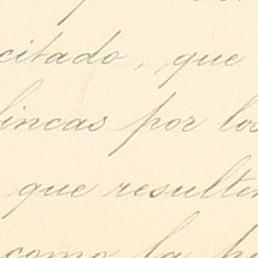 citado, que
fincas por los
que resulten
como la